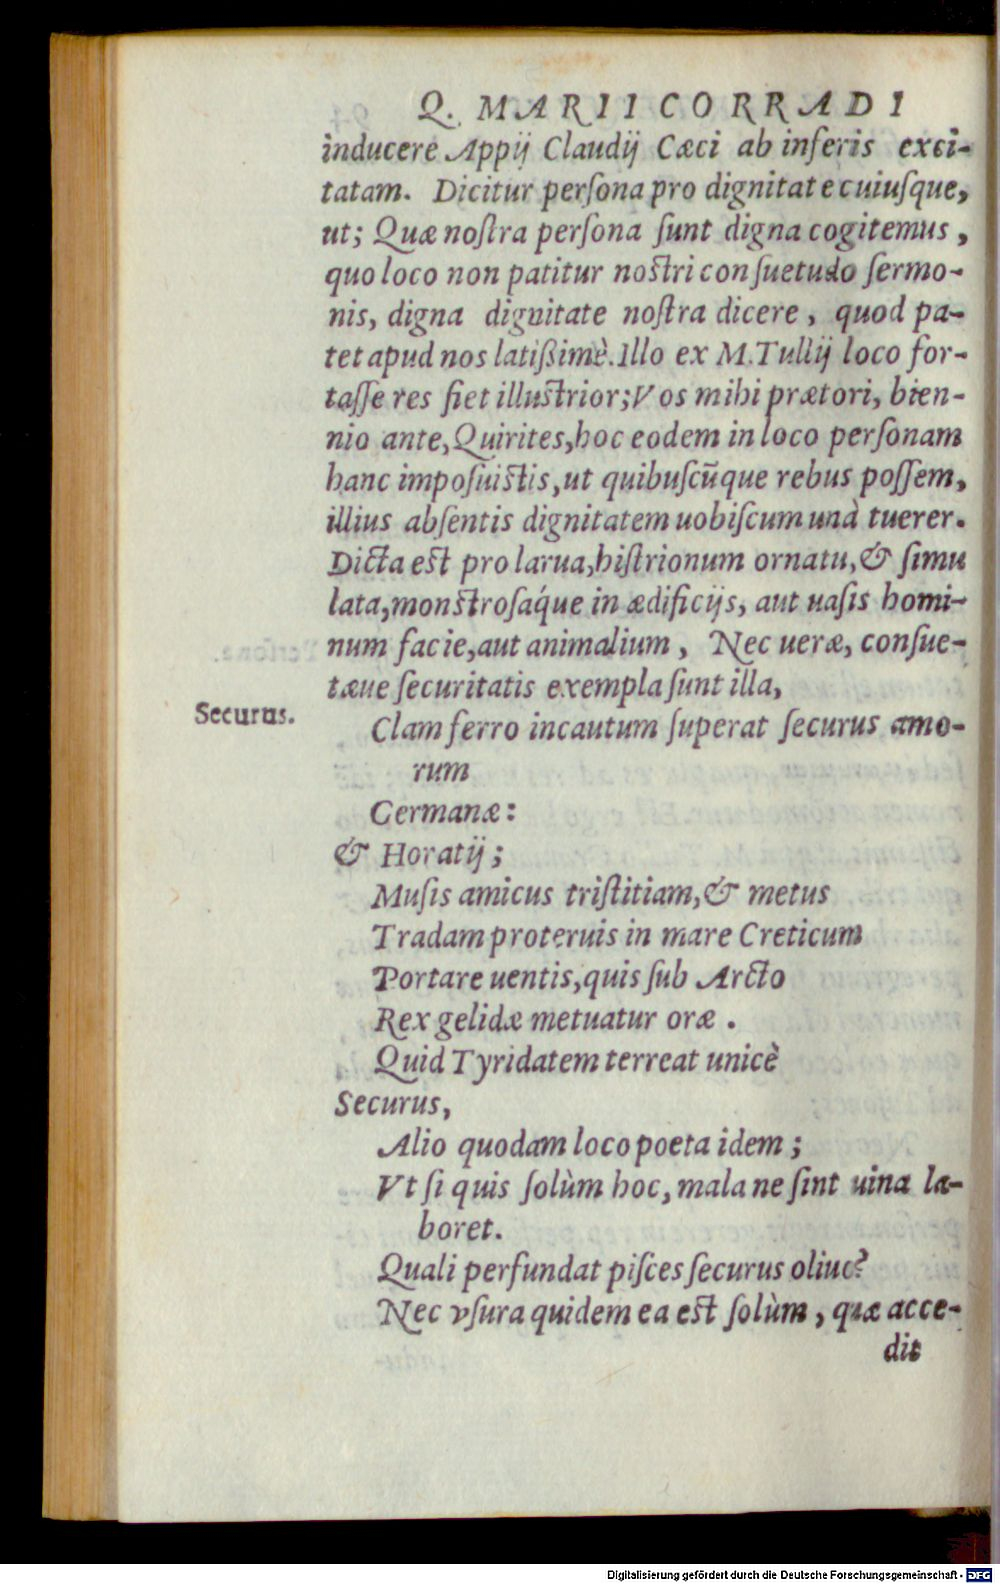 Q. MARII CORRADI
inducere Appij Claudij Cæci ab inferis exci-
tatam. Dicitur perſona pro dignitate cuiuſque,
ut; Quæ noſtra perſona ſunt digna cogitemus,
quo loco non patitur noſtri conſuetudo ſermo-
nis, digna dignitate noſtra dicere, quod pa-
tet apud nos latißimè. Illo ex M. Tullij loco for-
taſſe res fiet illuſtrior; Vos mihi prætori, bien-
nio ante, Quirites, hoc eodem in loco perſonam
hanc impoſuiſtis, ut quibuſcūque rebus poſſem,
illius abſentis dignitatem uobiſcum unà tuerer.
Dicta eſt pro larua, hiſtrionum ornatu, & ſimu
lata, monſtroſáque in ædificijs, aut uaſis homi-
num facie, aut animalium, Nec ueræ, conſue-
tæue ſecuritatis exempla ſunt illa,
Securus.
Clam ferro incautum ſuperat ſecurus amo-
rum
Germanæ:
& Horatij;
Muſis amicus triſtitiam, & metus
Tradam proteruis in mare Creticum
Portare uentis, quis ſub Arcto
Rex gelidæ metuatur oræ.
Quid Tyridatem terreat unicè
Securus,
Alio quodam loco poeta idem;
Vt ſi quis ſolùm hoc, mala ne ſint uina la-
boret.
Quali perfundat piſces ſecurus oliuo?
Nec vſura quidem ea eſt ſolùm, quæ acce-
dit
Digitalisierung gefördert durch die Deutsche Forschungsgemeinschaft - DFG